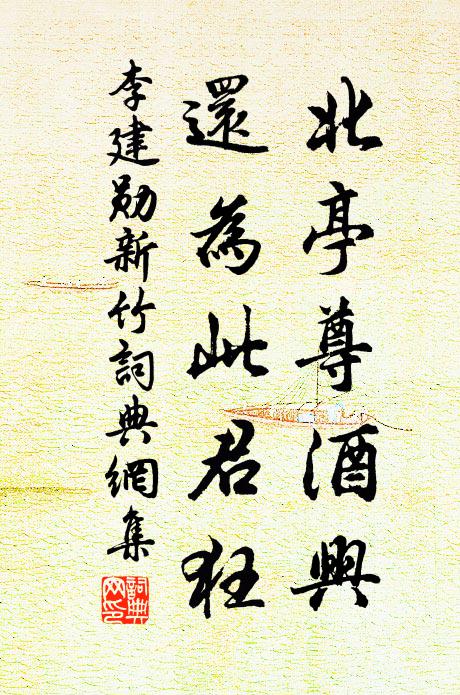 北亭尊酒興
還為此君狂
李建勛新竹詞典網集
詞典網印